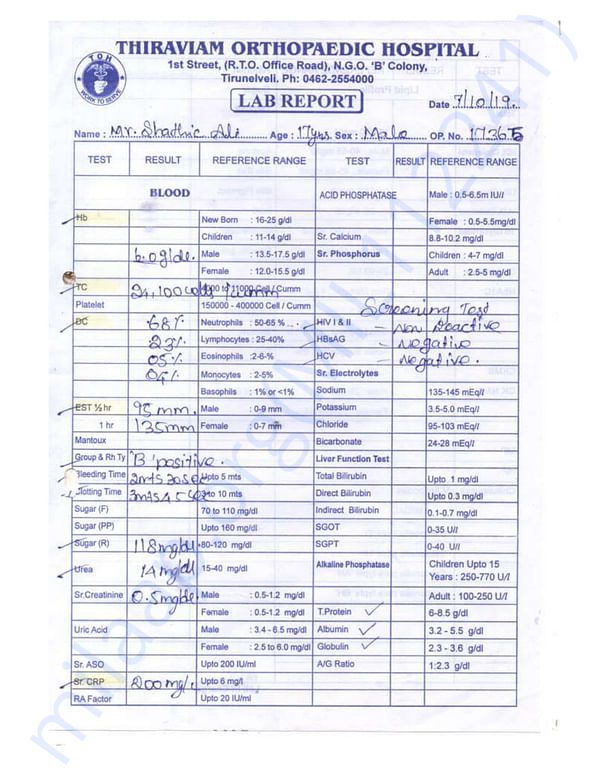 TOH
WORK TO SERVE
THIRAVIAM ORTHOPAEDIC HOSPITAL
1st Street, (R.T.O. Office Road), N.G.O. 'B' Colony,
Tirunelveli. Ph: 0462-2554000
LAB REPORT
Date 7/10/19
Name : Mr. Shadhic Ali Age : 17yrs Sex : Male OP. No. 1736
TEST RESULT REFERENCE RANGE TEST RESULT REFERENCE RANGE
BLOOD ACID PHOSPHATASE Male : 0.5-6.5m IU/l
Hb New Born : 16-25 g/dl Female : 0.5-5.5mg/dl
Children : 11-14 g/dl Sr. Calcium 8.8-10.2 mg/dl
6.0g/dl. Male : 13.5-17.5 g/dl Sr. Phosphorus Children : 4-7 mg/dl
Female : 12.0-15.5 g/dl Adult : 2.5-5 mg/dl
TC 24,100 cells/cumm 11000 Cell / Cumm
Platelet 150000 - 400000 Cell / Cumm Screening Test
DC 68% Neutrophils : 50-65 % HIV I & II - Non Reactive
23% Lymphocytes : 25-40% HBsAG - Negative
05% Eosinophils : 2-6-% HCV - Negative.
04% Monocytes : 2-5% Sr. Electrolytes
Basophils : 1% or <1% Sodium 135-145 mEq/l
EST ½ hr 95mm. Male : 0-9 mm Potassium 3.5-5.0 mEq/l
1 hr 135mm Female : 0-7 mm Chloride 95-103 mEq/l
Mantoux Bicarbonate 24-28 mEq/l
Group & Rh Ty 'B' positive. Liver Function Test
Bleeding Time 2mts 30sec Upto 5 mts Total Bilirubin Upto 1 mg/dl
Clotting Time 3mts 45sec to 10 mts Direct Bilirubin Upto 0.3 mg/dl
Sugar (F) 70 to 110 mg/dl Indirect Bilirubin 0.1-0.7 mg/dl
Sugar (PP) Upto 160 mg/dl SGOT 0-35 U/l
Sugar (R) 118mg/dl 80-120 mg/dl SGPT 0-40 U/l
Urea 14mg/dl 15-40 mg/dl Alkaline Phosphatase Children Upto 15
Years : 250-770 U/l
Sr.Creatinine 0.5mg/dl. Male : 0.5-1.2 mg/dl Adult : 100-250 U/l
Female : 0.5-1.2 mg/dl T.Protein ✓ 6-8.5 g/dl
Uric Acid Male : 3.4 - 6.5 mg/dl Albumin ✓ 3.2 - 5.5 g/dl
Female : 2.5 to 6.0 mg/dl Globulin ✓ 2.3 - 3.6 g/dl
Sr. ASO Upto 200 IU/ml A/G Ratio 1:2.3 g/dl
Sr. CRP 200mg/l Upto 6 mg/l
RA Factor Upto 20 IU/ml